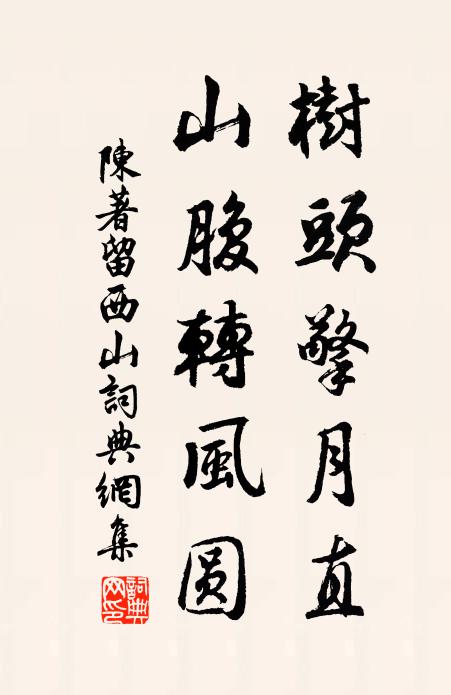 樹頭擎月直
山腹轉風圓
陳著留西山詞典網集
詞典網印